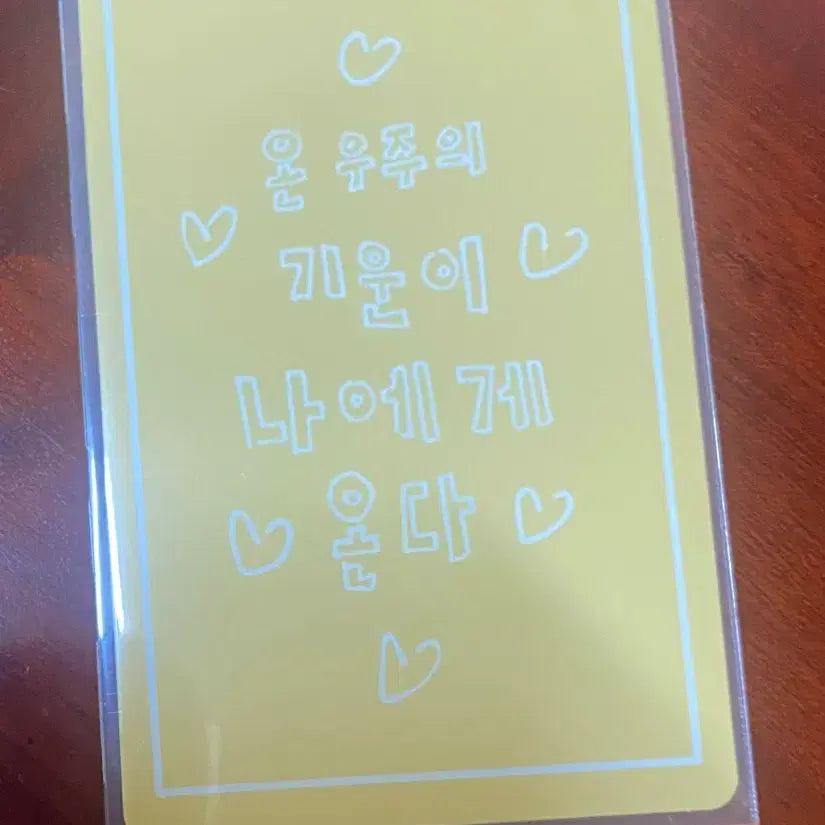 온 우주의
기운이
나에게
온다